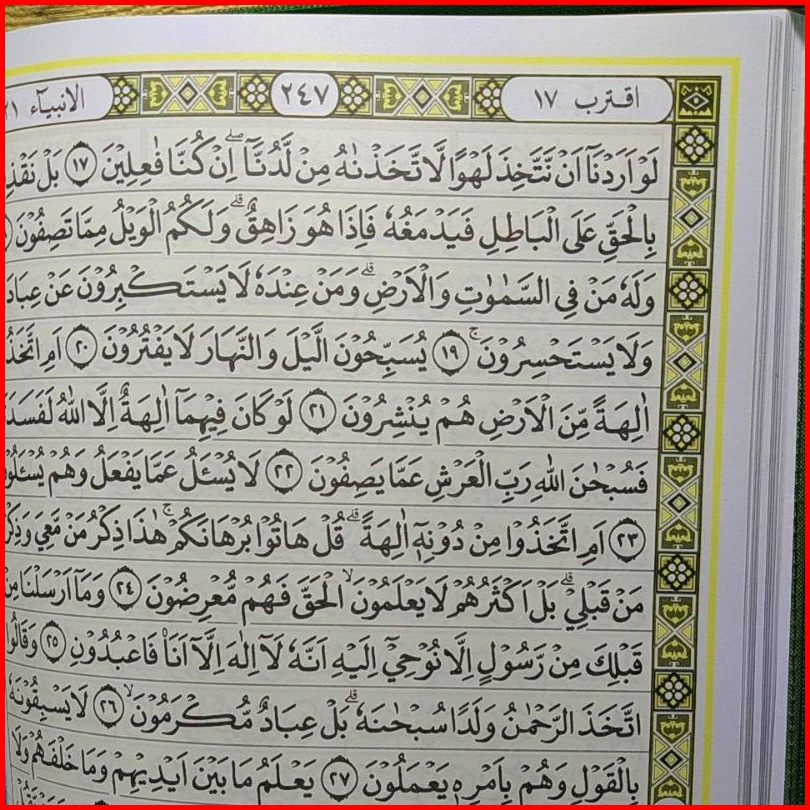 اقترب ١٧
٢٤٧
الانبيآء ٢١
لَوْ اَرَدْنَآ اَنْ نَّتَّخِذَ لَهْوًا لَّاتَّخَذْنٰهُ مِنْ لَّدُنَّآ ۖ اِنْ كُنَّا فٰعِلِيْنَ ١٧ بَلْ نَقْذِ
بِالْحَقِّ عَلَى الْبَاطِلِ فَيَدْمَغُهٗ فَاِذَا هُوَ زَاهِقٌ ۗ وَلَكُمُ الْوَيْلُ مِمَّا تَصِفُوْنَ
وَلَهٗ مَنْ فِى السَّمٰوٰتِ وَالْاَرْضِ ۗ وَمَنْ عِنْدَهٗ لَا يَسْتَكْبِرُوْنَ عَنْ عِبَادَ
وَلَا يَسْتَحْسِرُوْنَ ۚ ١٩ يُسَبِّحُوْنَ الَّيْلَ وَالنَّهَارَ لَا يَفْتُرُوْنَ ٢٠ اَمِ اتَّخَذُ
اٰلِهَةً مِّنَ الْاَرْضِ هُمْ يُنْشِرُوْنَ ٢١ لَوْ كَانَ فِيْهِمَآ اٰلِهَةٌ اِلَّا اللّٰهُ لَفَسَدَ
فَسُبْحٰنَ اللّٰهِ رَبِّ الْعَرْشِ عَمَّا يَصِفُوْنَ ٢٢ لَا يُسْـَٔلُ عَمَّا يَفْعَلُ وَهُمْ يُسْـَٔلُوْ
٢٣ اَمِ اتَّخَذُوْا مِنْ دُوْنِهٖٓ اٰلِهَةً ۗ قُلْ هَاتُوْا بُرْهَانَكُمْ ۚ هٰذَا ذِكْرُ مَنْ مَّعِيَ وَذِكْرُ
مَنْ قَبْلِيْ ۗ بَلْ اَكْثَرُهُمْ لَا يَعْلَمُوْنَ ۙ الْحَقَّ فَهُمْ مُّعْرِضُوْنَ ٢٤ وَمَآ اَرْسَلْنَا مِنْ
قَبْلِكَ مِنْ رَّسُوْلٍ اِلَّا نُوْحِيْٓ اِلَيْهِ اَنَّهٗ لَآ اِلٰهَ اِلَّآ اَنَا۠ فَاعْبُدُوْنِ ٢٥ وَقَالُوا
اتَّخَذَ الرَّحْمٰنُ وَلَدًا سُبْحٰنَهٗ ۗ بَلْ عِبَادٌ مُّكْرَمُوْنَ ۙ ٢٦ لَا يَسْبِقُوْنَهٗ
بِالْقَوْلِ وَهُمْ بِاَمْرِهٖ يَعْمَلُوْنَ ٢٧ يَعْلَمُ مَا بَيْنَ اَيْدِيْهِمْ وَمَا خَلْفَهُمْ وَلَا